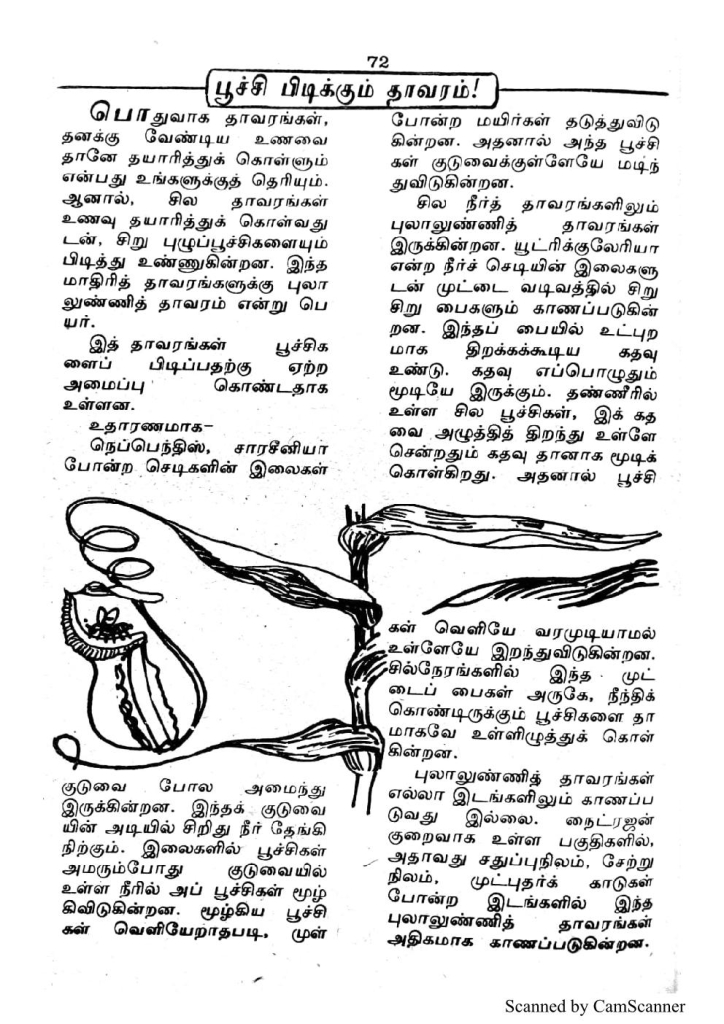 72
பூச்சி பிடிக்கும் தாவரம்!
பொதுவாக தாவரங்கள்,
தனக்கு வேண்டிய உணவை
தானே தயாரித்துக் கொள்ளும்
என்பது உங்களுக்குத் தெரியும்.
ஆனால், சில தாவரங்கள்
உணவு தயாரித்துக் கொள்வது
டன், சிறு புழுப்பூச்சிகளையும்
பிடித்து உண்ணுகின்றன. இந்த
மாதிரித் தாவரங்களுக்கு புலா
லுண்ணித் தாவரம் என்று பெ
யர்.
இத் தாவரங்கள் பூச்சிக
ளைப் பிடிப்பதற்கு ஏற்ற
அமைப்பு கொண்டதாக
உள்ளன.
உதாரணமாக–
நெப்பெந்திஸ், சாரசீனியா
போன்ற செடிகளின் இலைகள்
குடுவை போல அமைந்து
இருக்கின்றன. இந்தக் குடுவை
யின் அடியில் சிறிது நீர் தேங்கி
நிற்கும். இலைகளில் பூச்சிகள்
அமரும்போது குடுவையில்
உள்ள நீரில் அப் பூச்சிகள் மூழ்
கிவிடுகின்றன. மூழ்கிய பூச்சி
கள் வெளியேறாதபடி, முள்
போன்ற மயிர்கள் தடுத்துவிடு
கின்றன. அதனால் அந்த பூச்சி
கள் குடுவைக்குள்ளேயே மடிந்
துவிடுகின்றன.
சில நீர்த் தாவரங்களிலும்
புலாலுண்ணித் தாவரங்கள்
இருக்கின்றன. யூட்ரிக்குலேரியா
என்ற நீர்ச் செடியின் இலைகளு
டன் முட்டை வடிவத்தில் சிறு
சிறு பைகளும் காணப்படுகின்
றன. இந்தப் பையில் உட்புற
மாக திறக்கக்கூடிய கதவு
உண்டு. கதவு எப்பொழுதும்
மூடியே இருக்கும். தண்ணீரில்
உள்ள சில பூச்சிகள், இக் கத
வை அழுத்தித் திறந்து உள்ளே
சென்றதும் கதவு தானாக மூடிக்
கொள்கிறது. அதனால் பூச்சி
கள் வெளியே வரமுடியாமல்
உள்ளேயே இறந்துவிடுகின்றன.
சில்நேரங்களில் இந்த முட்
டைப் பைகள் அருகே, நீந்திக்
கொண்டிருக்கும் பூச்சிகளை தா
மாகவே உள்ளிழுத்துக் கொள்
கின்றன.
புலாலுண்ணித் தாவரங்கள்
எல்லா இடங்களிலும் காணப்ப
டுவது இல்லை. நைட்ரஜன்
குறைவாக உள்ள பகுதிகளில்,
அதாவது சதுப்புநிலம், சேற்று
நிலம், முட்புதர்க் காடுகள்
போன்ற இடங்களில் இந்த
புலாலுண்ணித் தாவரங்கள்
அதிகமாக காணப்படுகின்றன.
Scanned by CamScanner